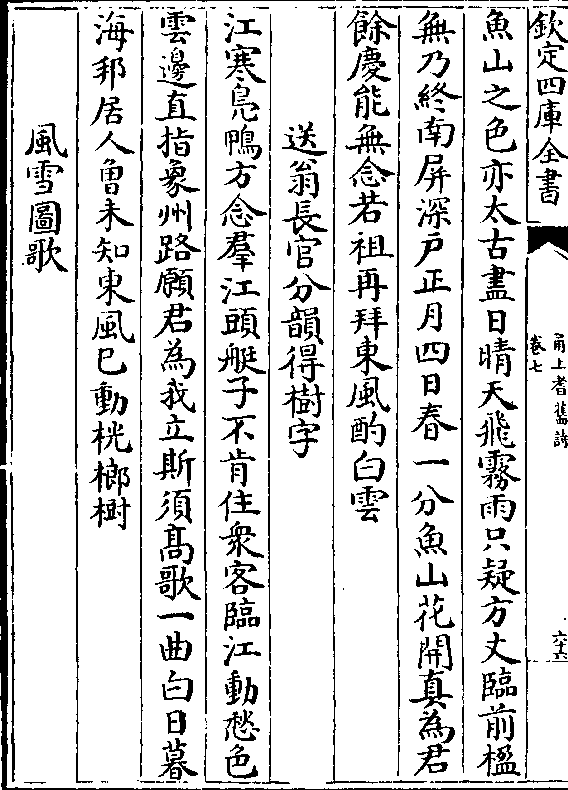 欽定四庫全書
甬上耆舊詩
卷七
六十六
魚山之色亦太古盡日晴天飛霧雨只疑方丈臨前楹
無乃終南屏深戸正月四日春一分魚山花開真為君
餘慶能無念若祖再拜東風酌白雲
送翁長官分韻得樹字
江寒鳬鴨方念羣江頭艇子不肯住衆客臨江動愁色
雲邊直指象州路願君為我立斯須髙歌一曲白日暮
海邦居人曽未知東風已動桄榔樹
風雪圖歌